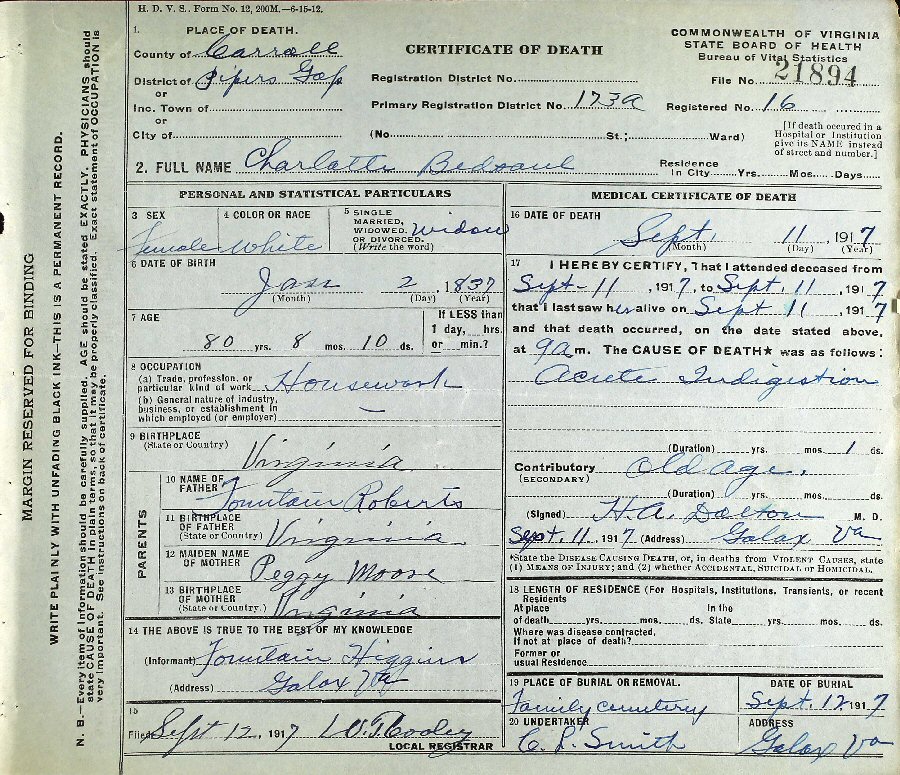 H. D. V. S., Form No. 12, 200M.—6-15-12.
MARGIN RESERVED FOR BINDING
WRITE PLAINLY WITH UNFADING BLACK INK—THIS IS A PERMANENT RECORD.
N. B.—Every item of information should be carefully supplied. AGE should be stated EXACTLY. PHYSICIANS should
state CAUSE OF DEATH in plain terms, so that it may be properly classified. Exact statement of OCCUPATION is
very important. See instructions on back of certificate.
1. PLACE OF DEATH.
County of Carroll
District of Pipers Gap
or
Inc. Town of
or
City of
CERTIFICATE OF DEATH
Registration District No.
Primary Registration District No. 173a
(No. St.; Ward)
COMMONWEALTH OF VIRGINIA
STATE BOARD OF HEALTH
Bureau of Vital Statistics
File No. 21894
Registered No. 16
[If death occured in a
Hospital or Institution
give its NAME instead
of street and number.]
2. FULL NAME Charlatte
Residence
In City Yrs. Mos. Days
PERSONAL AND STATISTICAL PARTICULARS
3 SEX
Female
4 COLOR OR RACE
White
5 SINGLE
MARRIED,
WIDOWED,
OR DIVORCED.
(Write the word)
widow
6 DATE OF BIRTH
Jan 2, 1837
(Month) (Day) (Year)
7 AGE
80 yrs. 8 mos. 10 ds.
If LESS than
1 day, hrs.
or min.?
8 OCCUPATION
(a) Trade, profession, or
particular kind of work Housework
(b) General nature of industry,
business, or establishment in
which employed (or employer) —
9 BIRTHPLACE
(State or Country)
Virginia
PARENTS
10 NAME OF
FATHER
Fountain Roberts
11 BIRTHPLACE
OF FATHER
(State or Country)
Virginia
12 MAIDEN NAME
OF MOTHER
Peggy Moore
13 BIRTHPLACE
OF MOTHER
(State or Country.)
Virginia
14 THE ABOVE IS TRUE TO THE BEST OF MY KNOWLEDGE
(Informant) Fountain Higgins
(Address) Galax Va
15
Filed Sept 12, 1917 Cooley
LOCAL REGISTRAR
MEDICAL CERTIFICATE OF DEATH
16 DATE OF DEATH
Sept. 11, 1917
(Month) (Day) (Year)
17 I HEREBY CERTIFY, That I attended deceased from
Sept-11, 1917, to Sept. 11, 1917
that I last saw her alive on Sept 11, 1917
and that death occurred, on the date stated above,
at 9 a m. The CAUSE OF DEATH★ was as follows:
Acute Indigestion
(Duration) yrs. mos. 1 ds.
Contributory Old age.
(SECONDARY)
(Duration) yrs. mos. ds.
(Signed) H.A. Dalton M. D.
Sept. 11, 1917 (Address) Galax Va
*State the DISEASE CAUSING DEATH, or, in deaths from VIOLENT CAUSES, state
(1) MEANS OF INJURY; and (2) whether ACCIDENTAL, SUICIDAL or HOMICIDAL.
18 LENGTH OF RESIDENCE (For Hospitals, Institutions, Transients, or recent
Residents
At place In the
of death yrs. mos. ds. State yrs. mos. ds.
Where was disease contracted,
If not at place of death?
Former or
usual Residence
19 PLACE OF BURIAL OR REMOVAL.
Family cemetery
DATE OF BURIAL
Sept. 12 1917
20 UNDERTAKER
C. L. Smith
ADDRESS
Galax Va